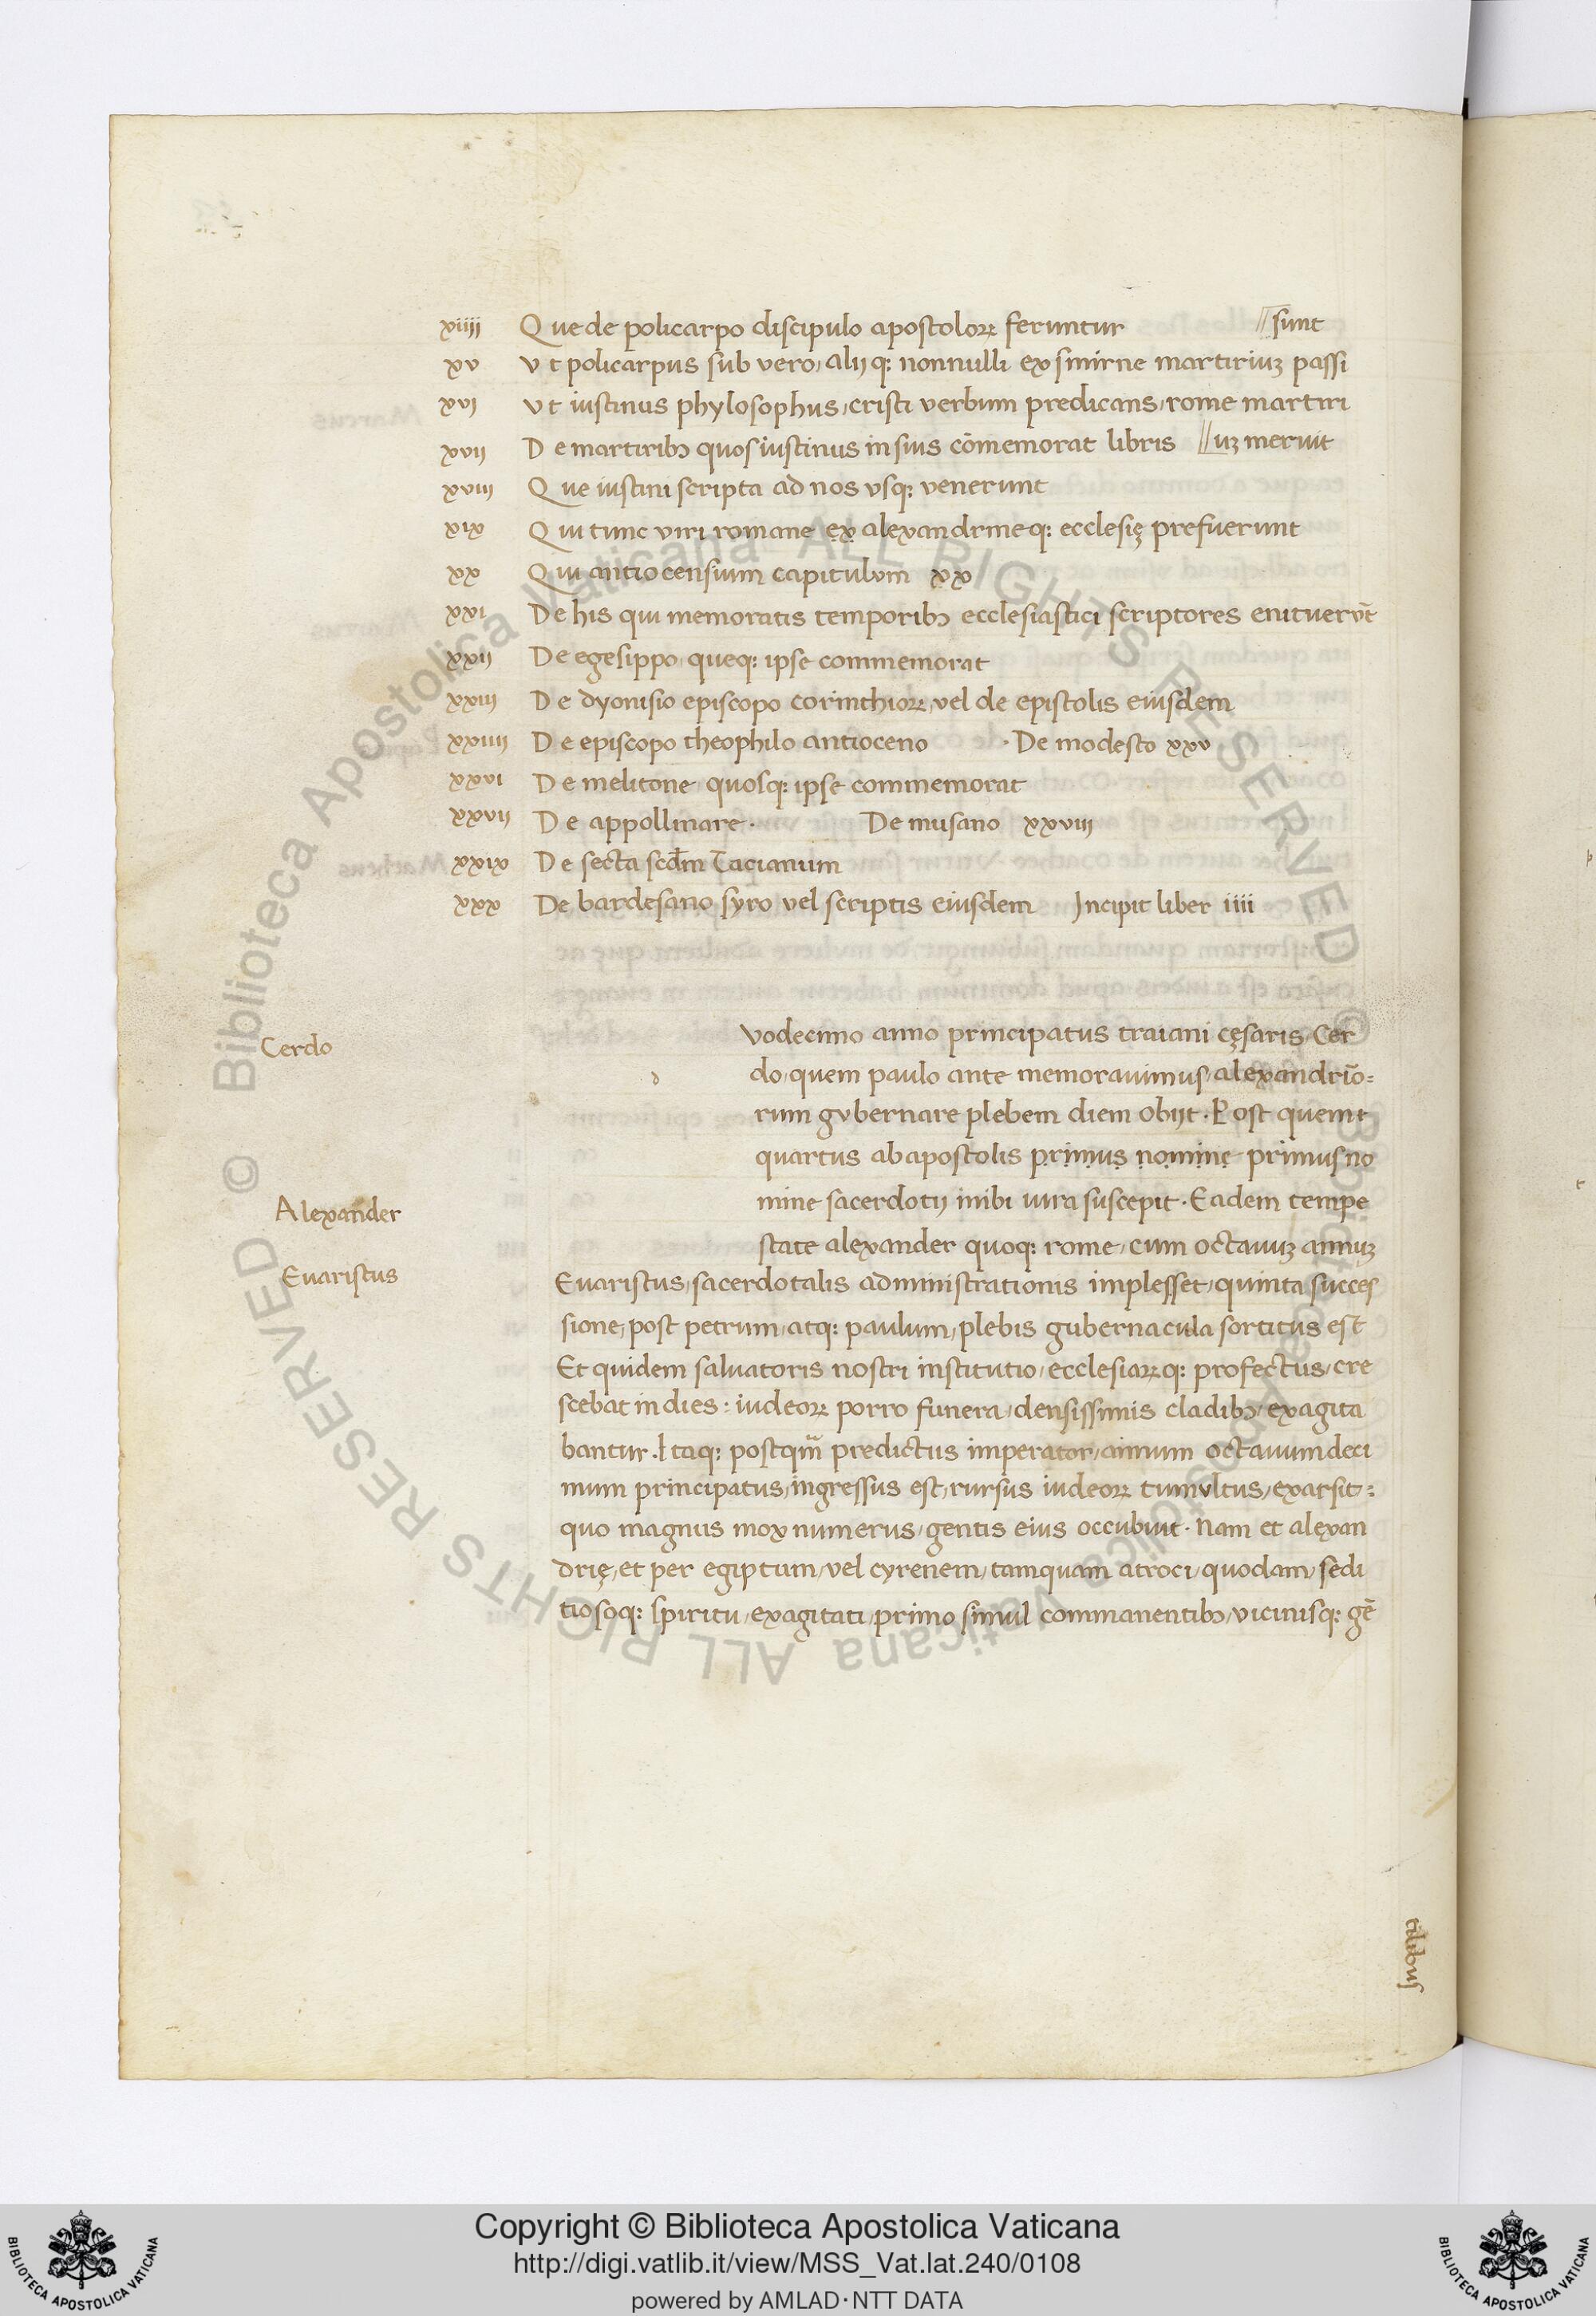 xiiii Que de policarpo discipulo apostoloꝝ feruntur //sunt
xv Vt policarpus sub vero, alij q: nonnulli ex smirne martiriuꝫ passi
xvj Vt iustinus phylosophus, cristi verbum predicans, rome martiri
xvij De martiribꝰ quos iustinus in suis cōmemorat libris //uꝫ meruit
xviij Que iustini scripta ad nos vsq: venerunt
xix Qui tunc viri romane ex alexandrineq: ecclesię prefuerunt
xx Qui antiocensium capitulum xx
xxi De his qui memoratis temporibꝰ ecclesiastici scriptores enituerūt
xxij De egesippo, queq: ipse commemorat
xxiij De dyonisio episcopo corinthioꝝ, vel de epistolis eiusdem
xxiiij De episcopo theophilo antioceno · De modesto xxv
xxvi De melitone quosq: ipse commemorat
xxvij De appollinare · De musano xxviij
xxix De secta scd̄m Tacianum
xxx De bardesano syro vel scriptis eiusdem Incipit liber iiii
Cerdo
vodecimo anno principatus traiani cęsaris, Cer
d
do, quem paulo ante memorauimus, alexandrīo=
rum gubernare plebem diem obijt · Post quem
quartus ab apostolis primus nomine primus no
mine sacerdotij inibi iura suscepit · Eadem tempe
Alexander
state alexander quoq: rome, cum octauuꝫ annuꝫ
Euaristus
Euaristus, sacerdotalis administrationis implesset, quinta succes
sione, post petrum, atq: paulum, plebis gubernacula sortitus est
Et quidem saluatoris nostri institutio, ecclesiaꝝq: profectus, cre
scebat in dies : iudeoꝝ porro funera, densissimis cladibꝰ, exagita
bantur . Itaq: postqm̄ predictus imperator, annum octauumdeci
mum principatus, ingressus est, rursus iudeoꝝ tumultus, exarsit :
quo magnus mox numerus, gentis eius occubuit · Nam et alexan
drię, et per egiptum, vel cyrenem, tamquam atroci, quodam, sedi
tiosoq: spiritu, exagitati, primo simul commanentibꝰ, vicinisq: gē
tilibus
© Biblioteca Apostolica Vaticana ALL RIGHTS RESERVED
© Biblioteca Apostolica Vaticana ALL RIGHTS RESERVED
Copyright © Biblioteca Apostolica Vaticana
http://digi.vatlib.it/view/MSS_Vat.lat.240/0108
powered by AMLAD·NTT DATA
BIBLIOTECA APOSTOLICA VATICANA
BIBLIOTECA APOSTOLICA VATICANA